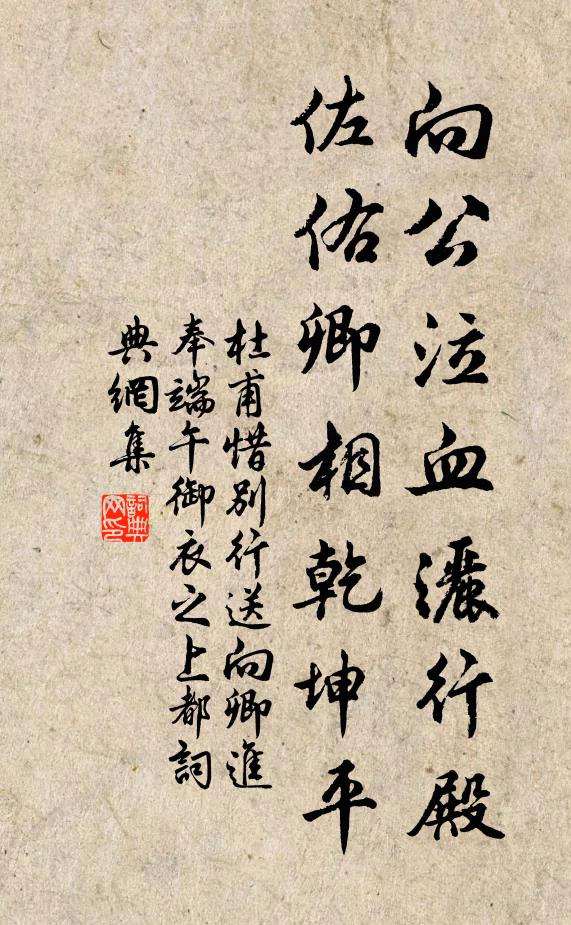 向公泣血灑行殿
佐佑卿相乾坤平
杜甫惜別行送向卿進
奉端午御衣之上都詞
典網集
詞典
网印